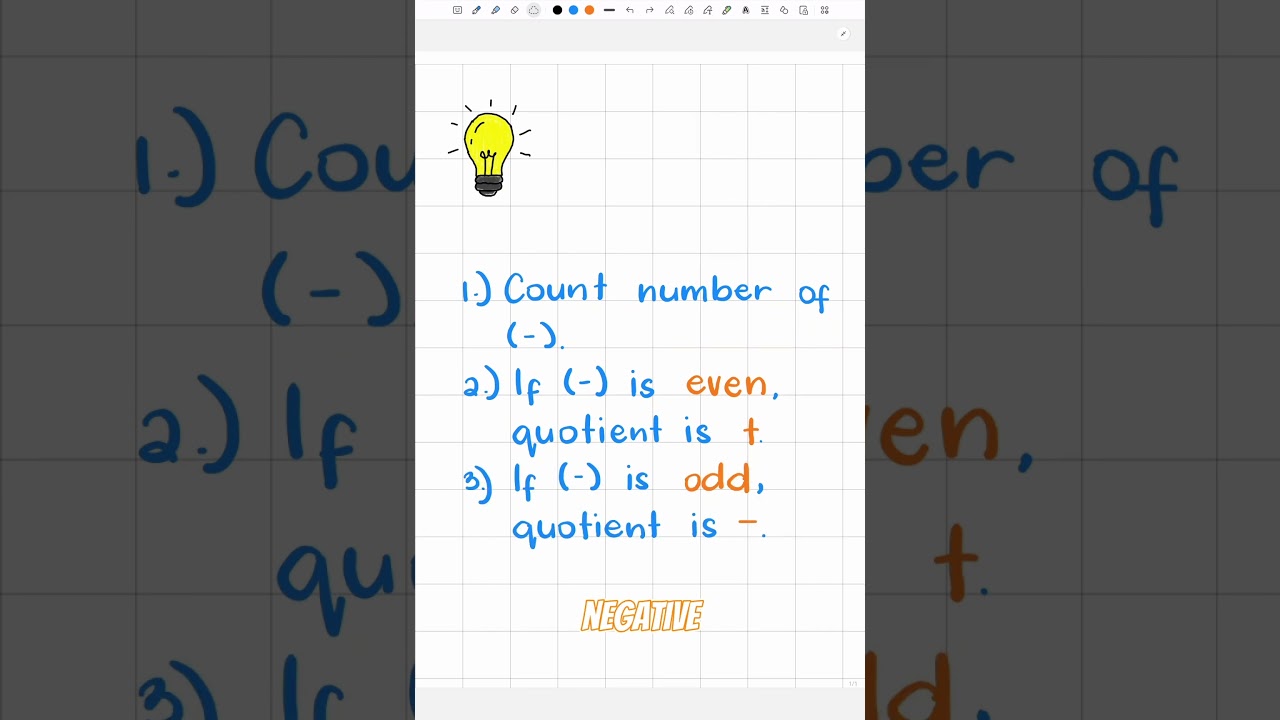 1.) Count number of
(-).
2.) If (-) is even,
quotient is t.
3.) If (-) is odd,
quotient is -.
NEGATIVE
1/1